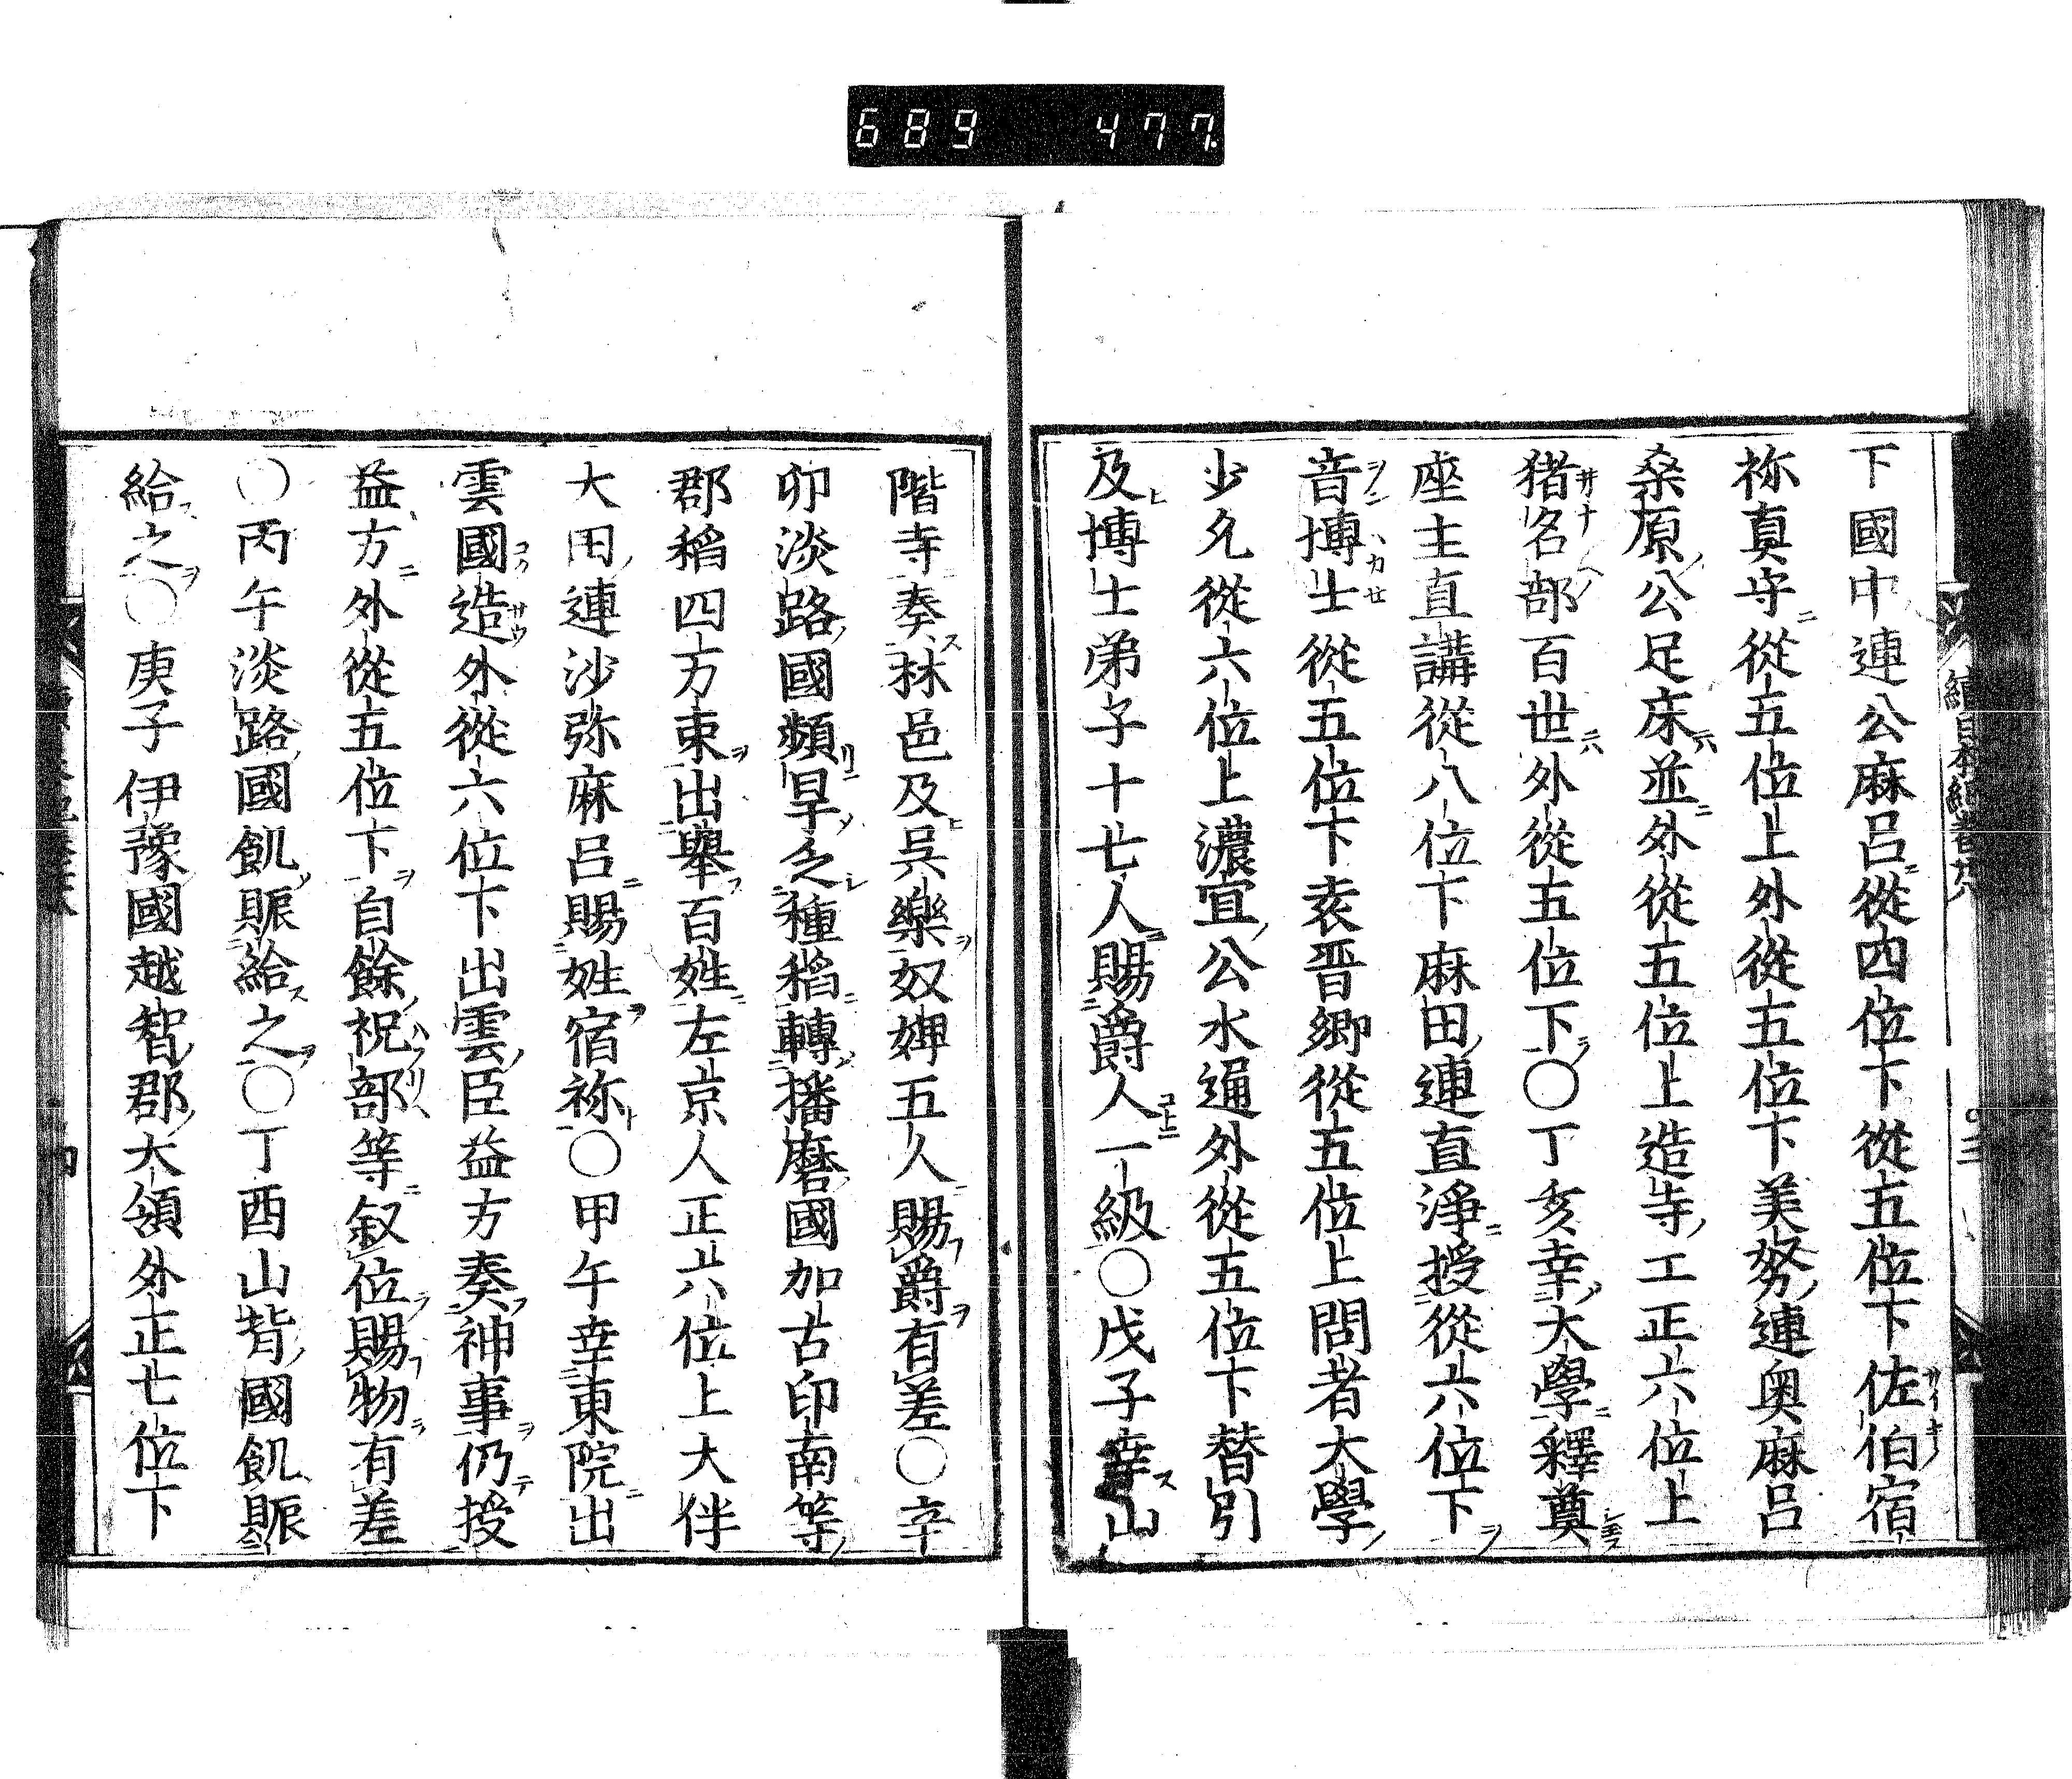 689 477.
下國中連公麻呂從四位下從五位下佐伯宿
祢真守從五位上外從五位下美努連奥麻呂
桑原公足床並外從五位上造寺工正六位上
猪名部百世外從五位下〇丁亥幸大學釋奠
座主直講從八位下麻田連直淨授從六位下
音博士從五位下袁晋卿從五位上問者大學
少允從六位上濃宜公水通外從五位下替引
及博士弟子十七人賜爵人一級〇戊子幸山
階寺奏林邑及呉樂奴婢五人賜爵有差〇辛
卯淡路國頻旱乏種稻轉播磨國加古印南等
郡稻四万束出擧百姓左京人正六位上大伴
大田連沙弥麻呂賜姓宿祢〇甲午幸東院出
雲國造外從六位下出雲臣益方奏神事仍授
益方外從五位下自餘祝部等叙位賜物有差
〇丙午淡路國飢賑給之〇丁酉山背國飢賑
給之〇庚子伊豫國越智郡大領外正七位下